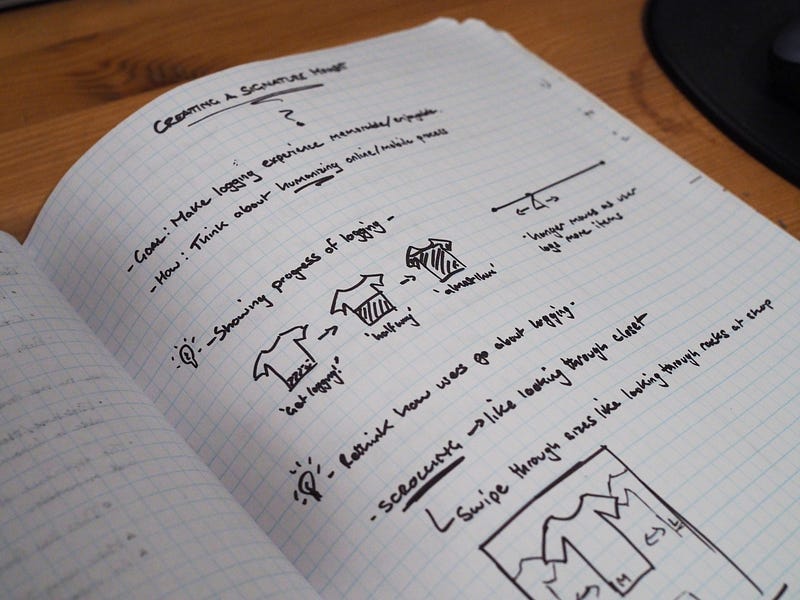 CREATING A SIGNATURE MOMENT
?
- GOAL: Make logging experience memorable/enjoyable.
- How: Think about humanizing online/mobile process
- Showing progress of logging -
'Get logging!'
'halfway'
'almost there'
'hanger moves as user
logs more items
- Rethink how users go about logging -
- SCROLLING → like looking through closet
Swipe through sizes like looking through racks at shop
M